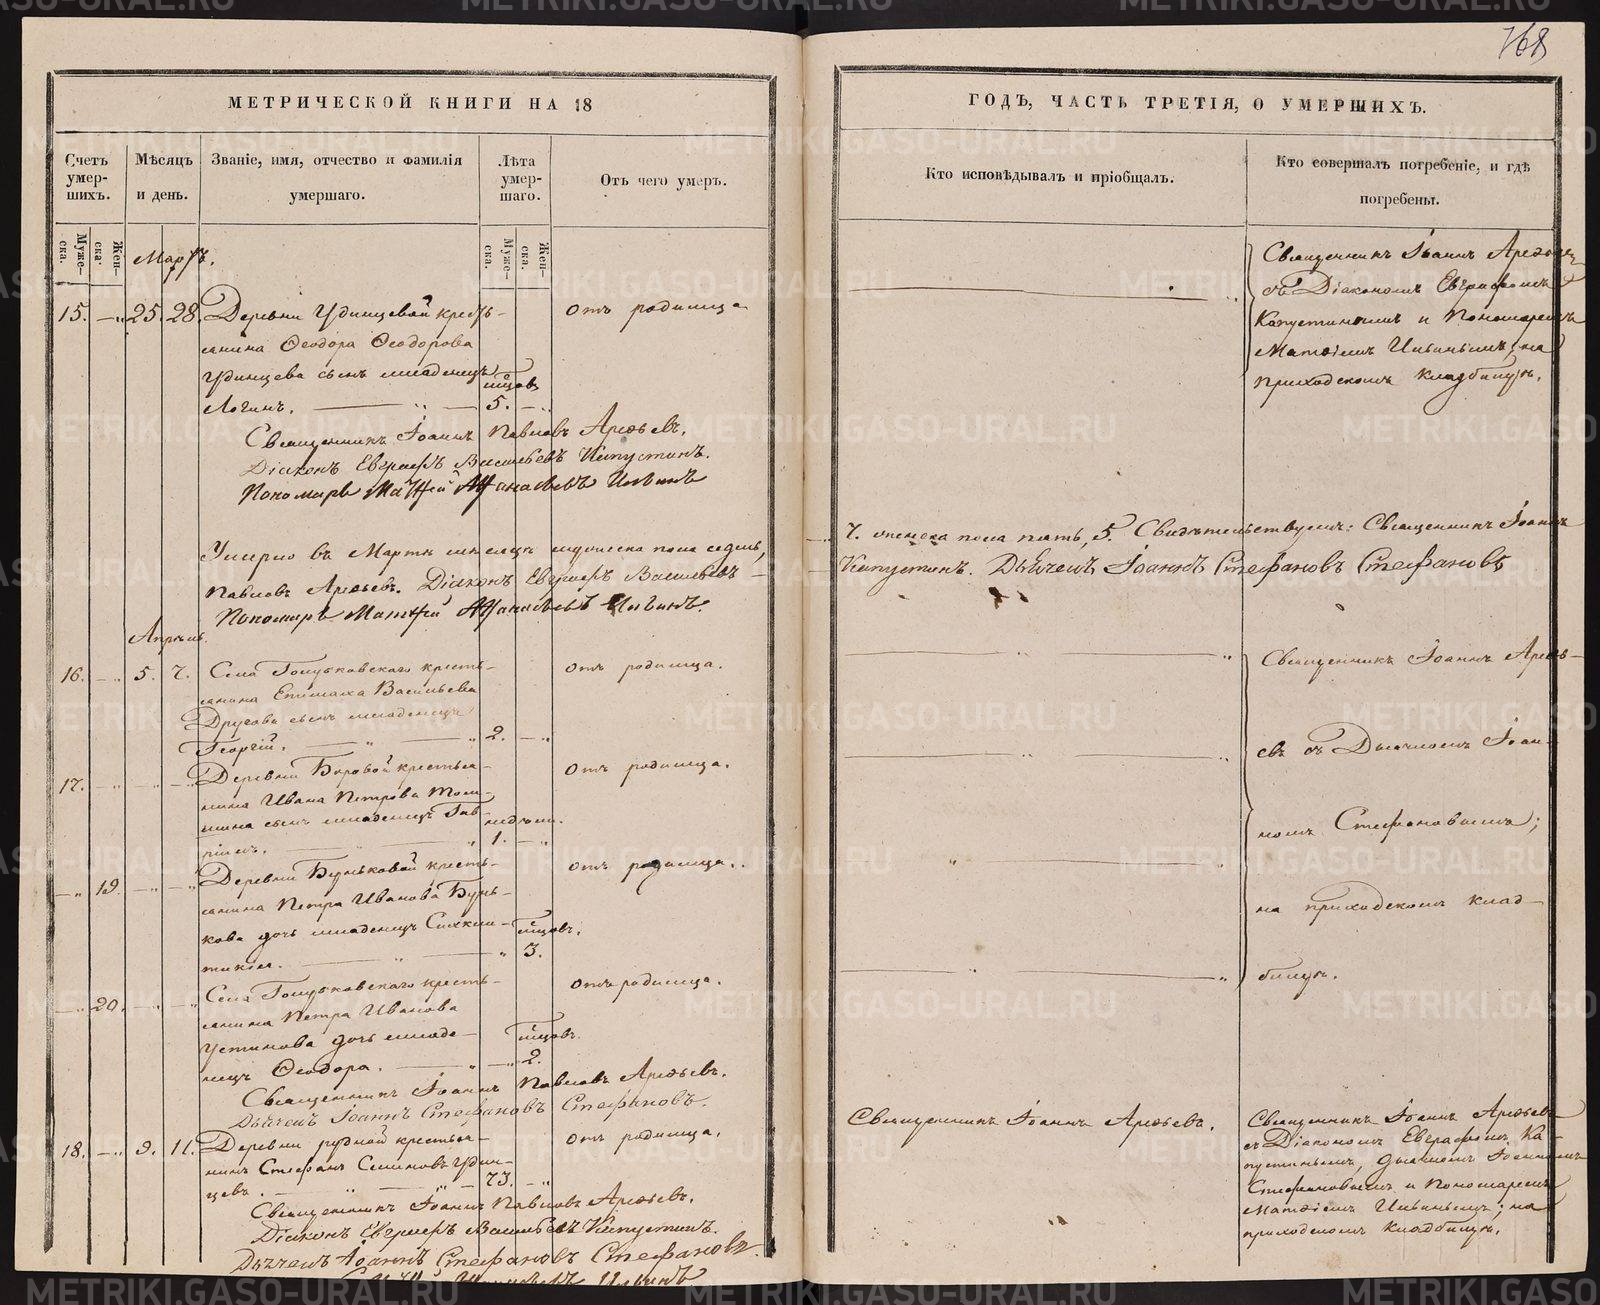 768
МЕТРИЧЕСКОЙ КНИГИ НА 18
Счетъ умер- шихъ.
Мѣсяцъ и день.
Званіе, имя, отчество и фамилія
умершаго.
Лѣта умер- шаго.
Отъ чего умеръ.
Муже- ска.
Жен- ска.
Муже- ска.
Жен- ска.
Мартъ.
15. 25. 28. Деревни Удинцевой кресть-
отъ родимца
янина Ѳеодора Ѳеодорова
Удинцева сынъ младенецъ
Логинъ. 5.
Священникъ Іоаннъ Павловъ Арефьевъ.
Діаконъ Евграфъ Васильевъ Капустинъ.
Пономарь Матѳей Аѳанасьевъ Ильинъ
Умерло въ Мартѣ мѣсяцѣ мужеска пола седмь,
Павловъ Арефьевъ. Діаконъ Евграфъ Васильевъ
Пономарь Матѳей Аѳанасьевъ Ильинъ.
Апрѣль.
16. 5. 7. Села Голубковскаго кресть-
отъ родимца.
янина Епимаха Васильева
сынъ младенецъ
Георгій. 2.
17. Деревни Боровой крестья-
отъ родимца.
нина Ивана Петрова
сынъ младенецъ Гав-
недѣли.
ріилъ. 1.
19. Деревни Буньковой кресть-
отъ родимца.
янина Петра Иванова Бунь-
кова дочь младенецъ
3.
20. Села Голубковскаго кресть-
отъ родимца.
янина Петра Иванова
Устинова дочь младе-
нецъ Ѳеодора. 2.
Священникъ Іоаннъ Павловъ Арефьевъ.
Дьячекъ Іоаннъ Стефановъ Стефановъ.
18. 9. 11. Деревни Рудной крестья-
отъ родимца.
нинъ Стефанъ Удин-
цевъ. 73.
Священникъ Іоаннъ Павловъ Арефьевъ.
Діаконъ Евграфъ Васильевъ Капустинъ.
Дьячекъ Іоаннъ Стефановъ Стефановъ
Ильинъ
ГОДЪ, ЧАСТЬ ТРЕТІЯ, О УМЕРШИХЪ.
Кто исповѣдывалъ и пріобщалъ.
Кто совершалъ погребеніе, и гдѣ
погребены.
Священникъ Іоаннъ Арефьевъ
съ Діакономъ Евграфомъ
Капустинымъ и Пономаремъ
Матѳіемъ Ильинымъ; на
приходскомъ кладбищѣ.
7. женска пола пять, 5. Свидѣтельствуемъ: Священникъ Іоаннъ
Капустинъ. Дьячекъ Іоаннъ Стефановъ Стефановъ
Священникъ Іоаннъ Арефь-
евъ съ Дьячкомъ Іоан-
номъ Стефановымъ;
на приходскомъ клад-
бищѣ.
Священникъ Іоаннъ Арефьевъ.
Священникъ Іоаннъ Арефьевъ
съ Діакономъ Евграфомъ Ка-
пустинымъ, дьячкомъ Іоанномъ
Стефановымъ и Пономаремъ
Матѳіемъ Ильинымъ; на
приходскомъ кладбищѣ.
METRIKI.GASO-URAL.RU